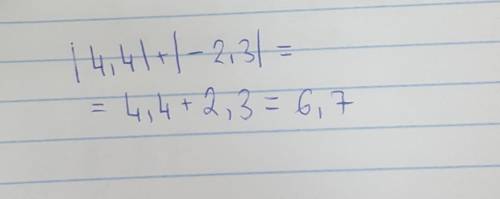 |4,4|+|-2,3|=
= 4,4+2,3= 6,7